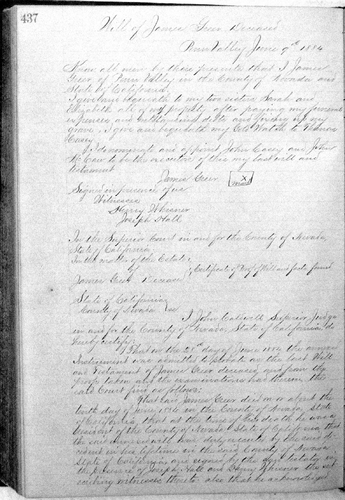 437
Will of James Geer Deceased
Penn Valley June 9th 1884
Know all men by these presents that I James
Geer of Penn Valley in the County of Nevada and
State of California
I give and bequeath to my two sisters Sarah and
Elizabeth all of my property after paying my funeral
expenses and outstanding debts and fencing up my
grave. I give and bequeath my Gold Watch to Thomas
Casey
I do nominate and appoint John Casey and John
to be the executors of this my last will and
testament
James Geer X mark
Signed in presence of
Witnesses
Henry
Joseph Hall
In the Superior Court in and for the County of Nevada
State of California
In the matter of the Estate
of
James Geer Deceased
Certificate of Proof of Will and facts found
State of California
County of Nevada ss
I John Caldwell Superior Judge
in and for the County of Nevada, State of California do
hereby certify:
That on the 28th day of June 1884 the annexed
Instrument was admitted to probate as the last Will
and Testament of James Geer deceased, and from the
proofs taken and the examination had therein, the
said Court finds as follows:
That said James Geer died on or about the
tenth day of June 1884 in the County of Nevada State
of California, that at the time of his death he was a
resident of the County of Nevada State of California that
the said annexed will was duly executed by the said
deceased in his lifetime in the said County of Nevada
State of California and signed by the said testator in
the presence of Joseph Hall and Henry the
subscribing witnesses thereto also that he acknowledged